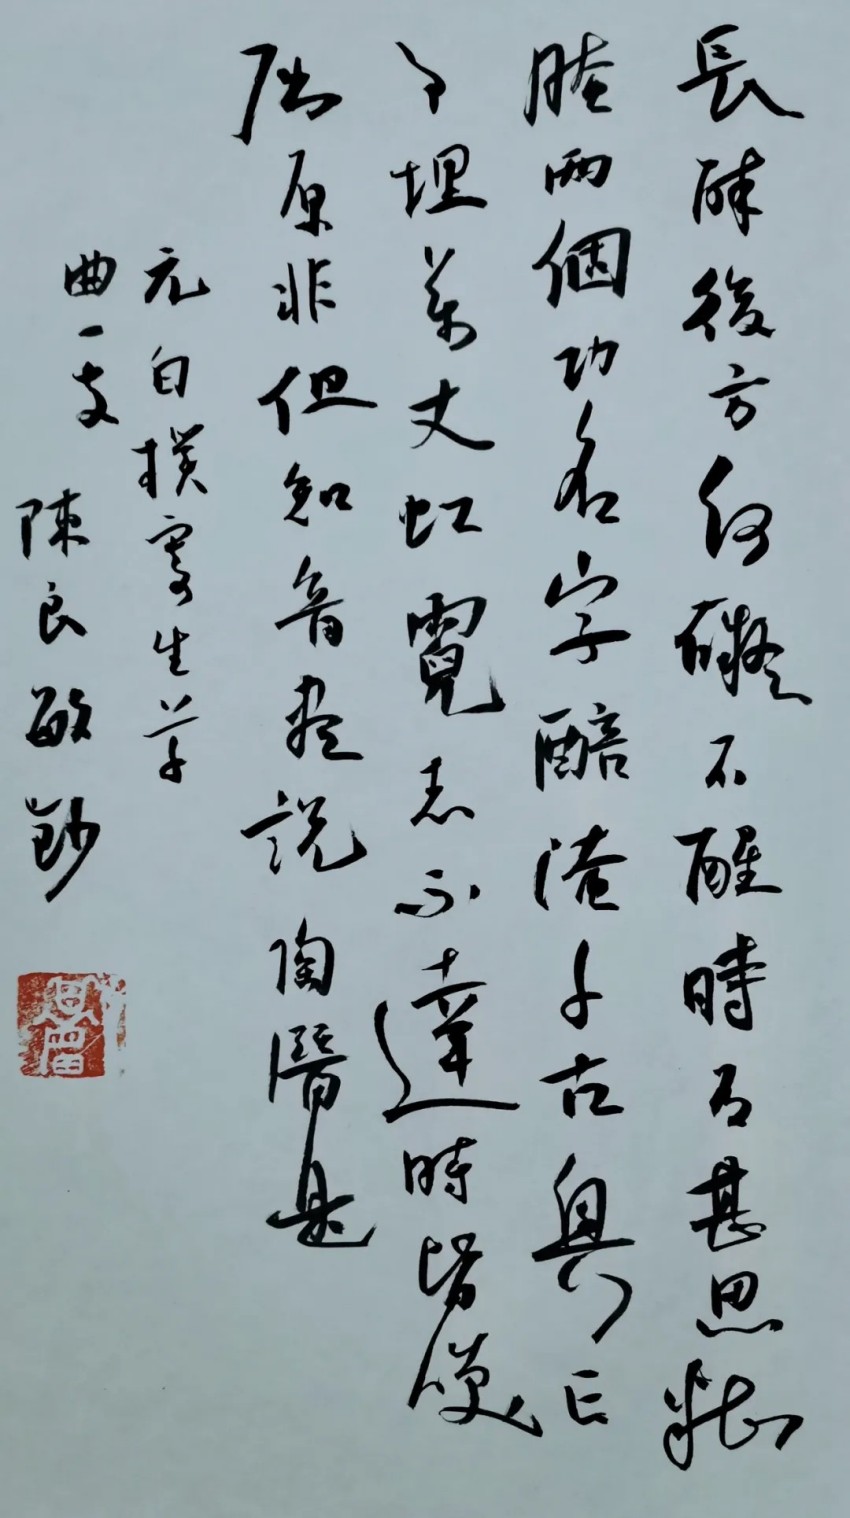 長醉後方何礙不醒時有甚思糟
腌兩個功名字醅淹千古興亡
事埋萬丈虹霓志不達時皆笑
屈原非但知音盡說陶潛是
元白樸寄生草
曲一支 陳良敏鈔